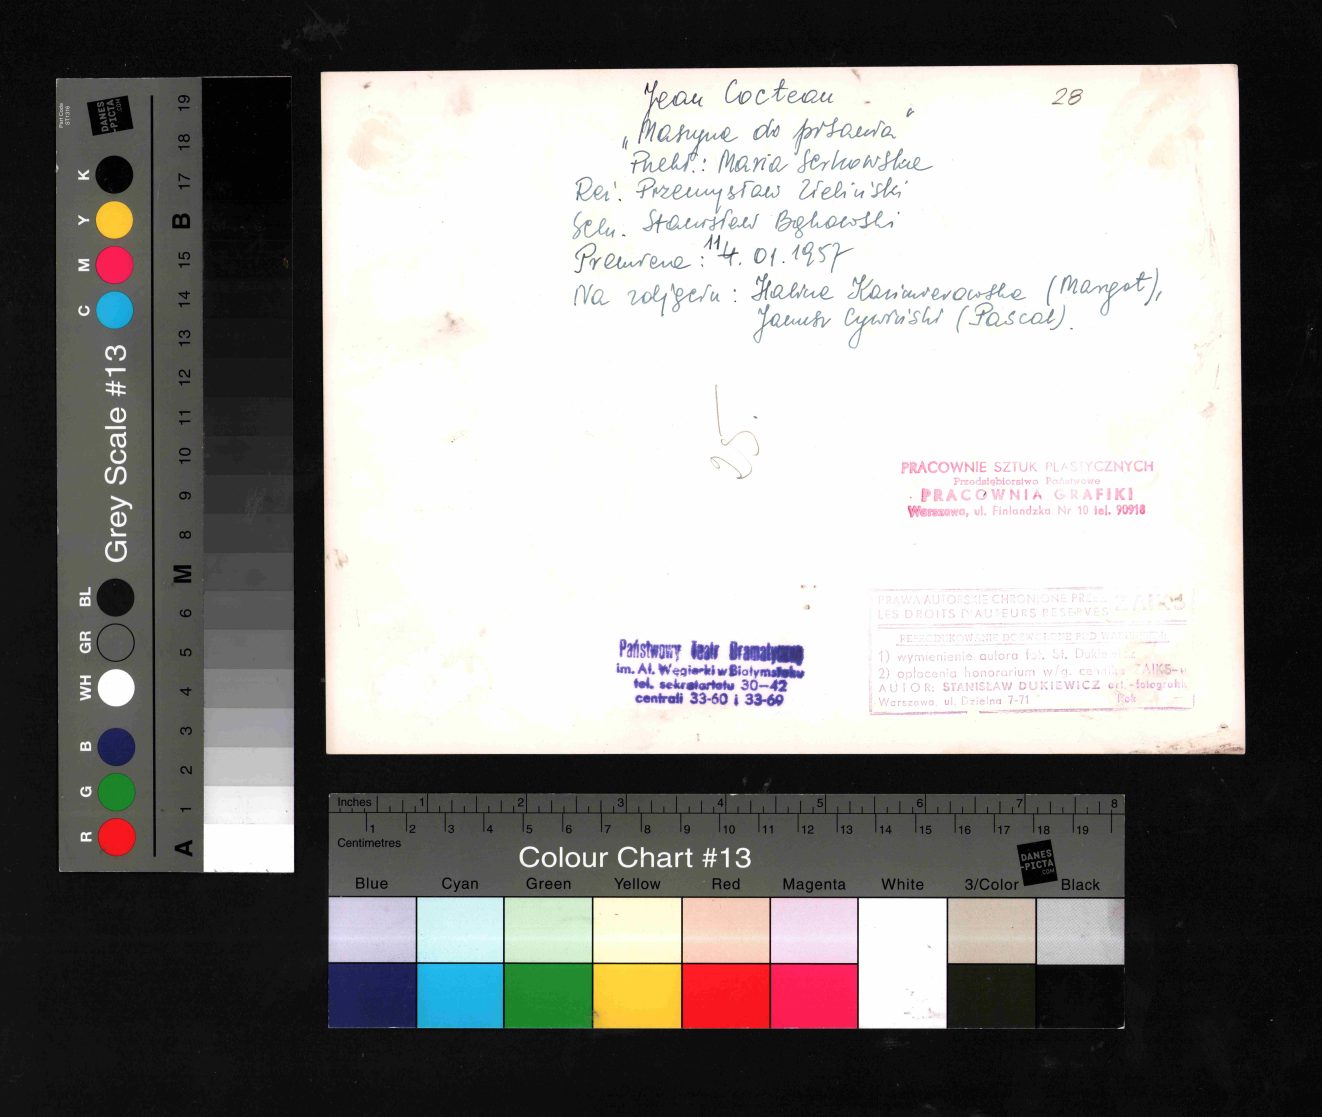 Jean Cocteau
28
„Maszyna do pisania"
Przekł.: Maria Serkowska
Reż. Przemysław Zieliński
Scen. Stanisław Bąkowski
Premiera: 11. 01. 1957
Na zdjęciu: Halina Kazimierowska (Margot),
Janusz Cywiński (Pascal).
PRACOWNIE SZTUK PLASTYCZNYCH
Przedsiębiorstwo Państwowe
PRACOWNIA GRAFIKI
Warszawa, ul. Finlandzka Nr 10 tel. 90918
Państwowy Teatr Dramatyczny
im. Al. Węgierki w Białymstoku
tel. sekretariatu 30—42
centrali 33-60 i 33-69
PRAWA AUTORSKIE CHRONIONE PRZEZ ZAIKS
LES DROITS D'AUTEURS RESERVES
REPRODUKOWANIE DOZWOLONE POD WARUNKIEM
1) wymienienie autora fot. St. Dukiewicz
2) opłacenia honorarium w/g. cennika ZAIKS-u
AUTOR: STANISŁAW DUKIEWICZ art.-fotografik
Warszawa, ul. Dzielna 7-71 Rok
Part Code
ST1316
DANES
-PICTA
.COM
Grey Scale #13
R G B WH GR BL C M Y K
A 1 2 3 4 5 6 M 8 9 10 11 12 13 14 15 B 17 18 19
Inches 1 2 3 4 5 6 7 8
1 2 3 4 5 6 7 8 9 10 11 12 13 14 15 16 17 18 19
Centimetres
Colour Chart #13
DANES
-PICTA
.COM
Blue Cyan Green Yellow Red Magenta White 3/Color Black